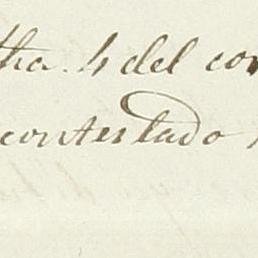 tha. 4 del cor
contestado